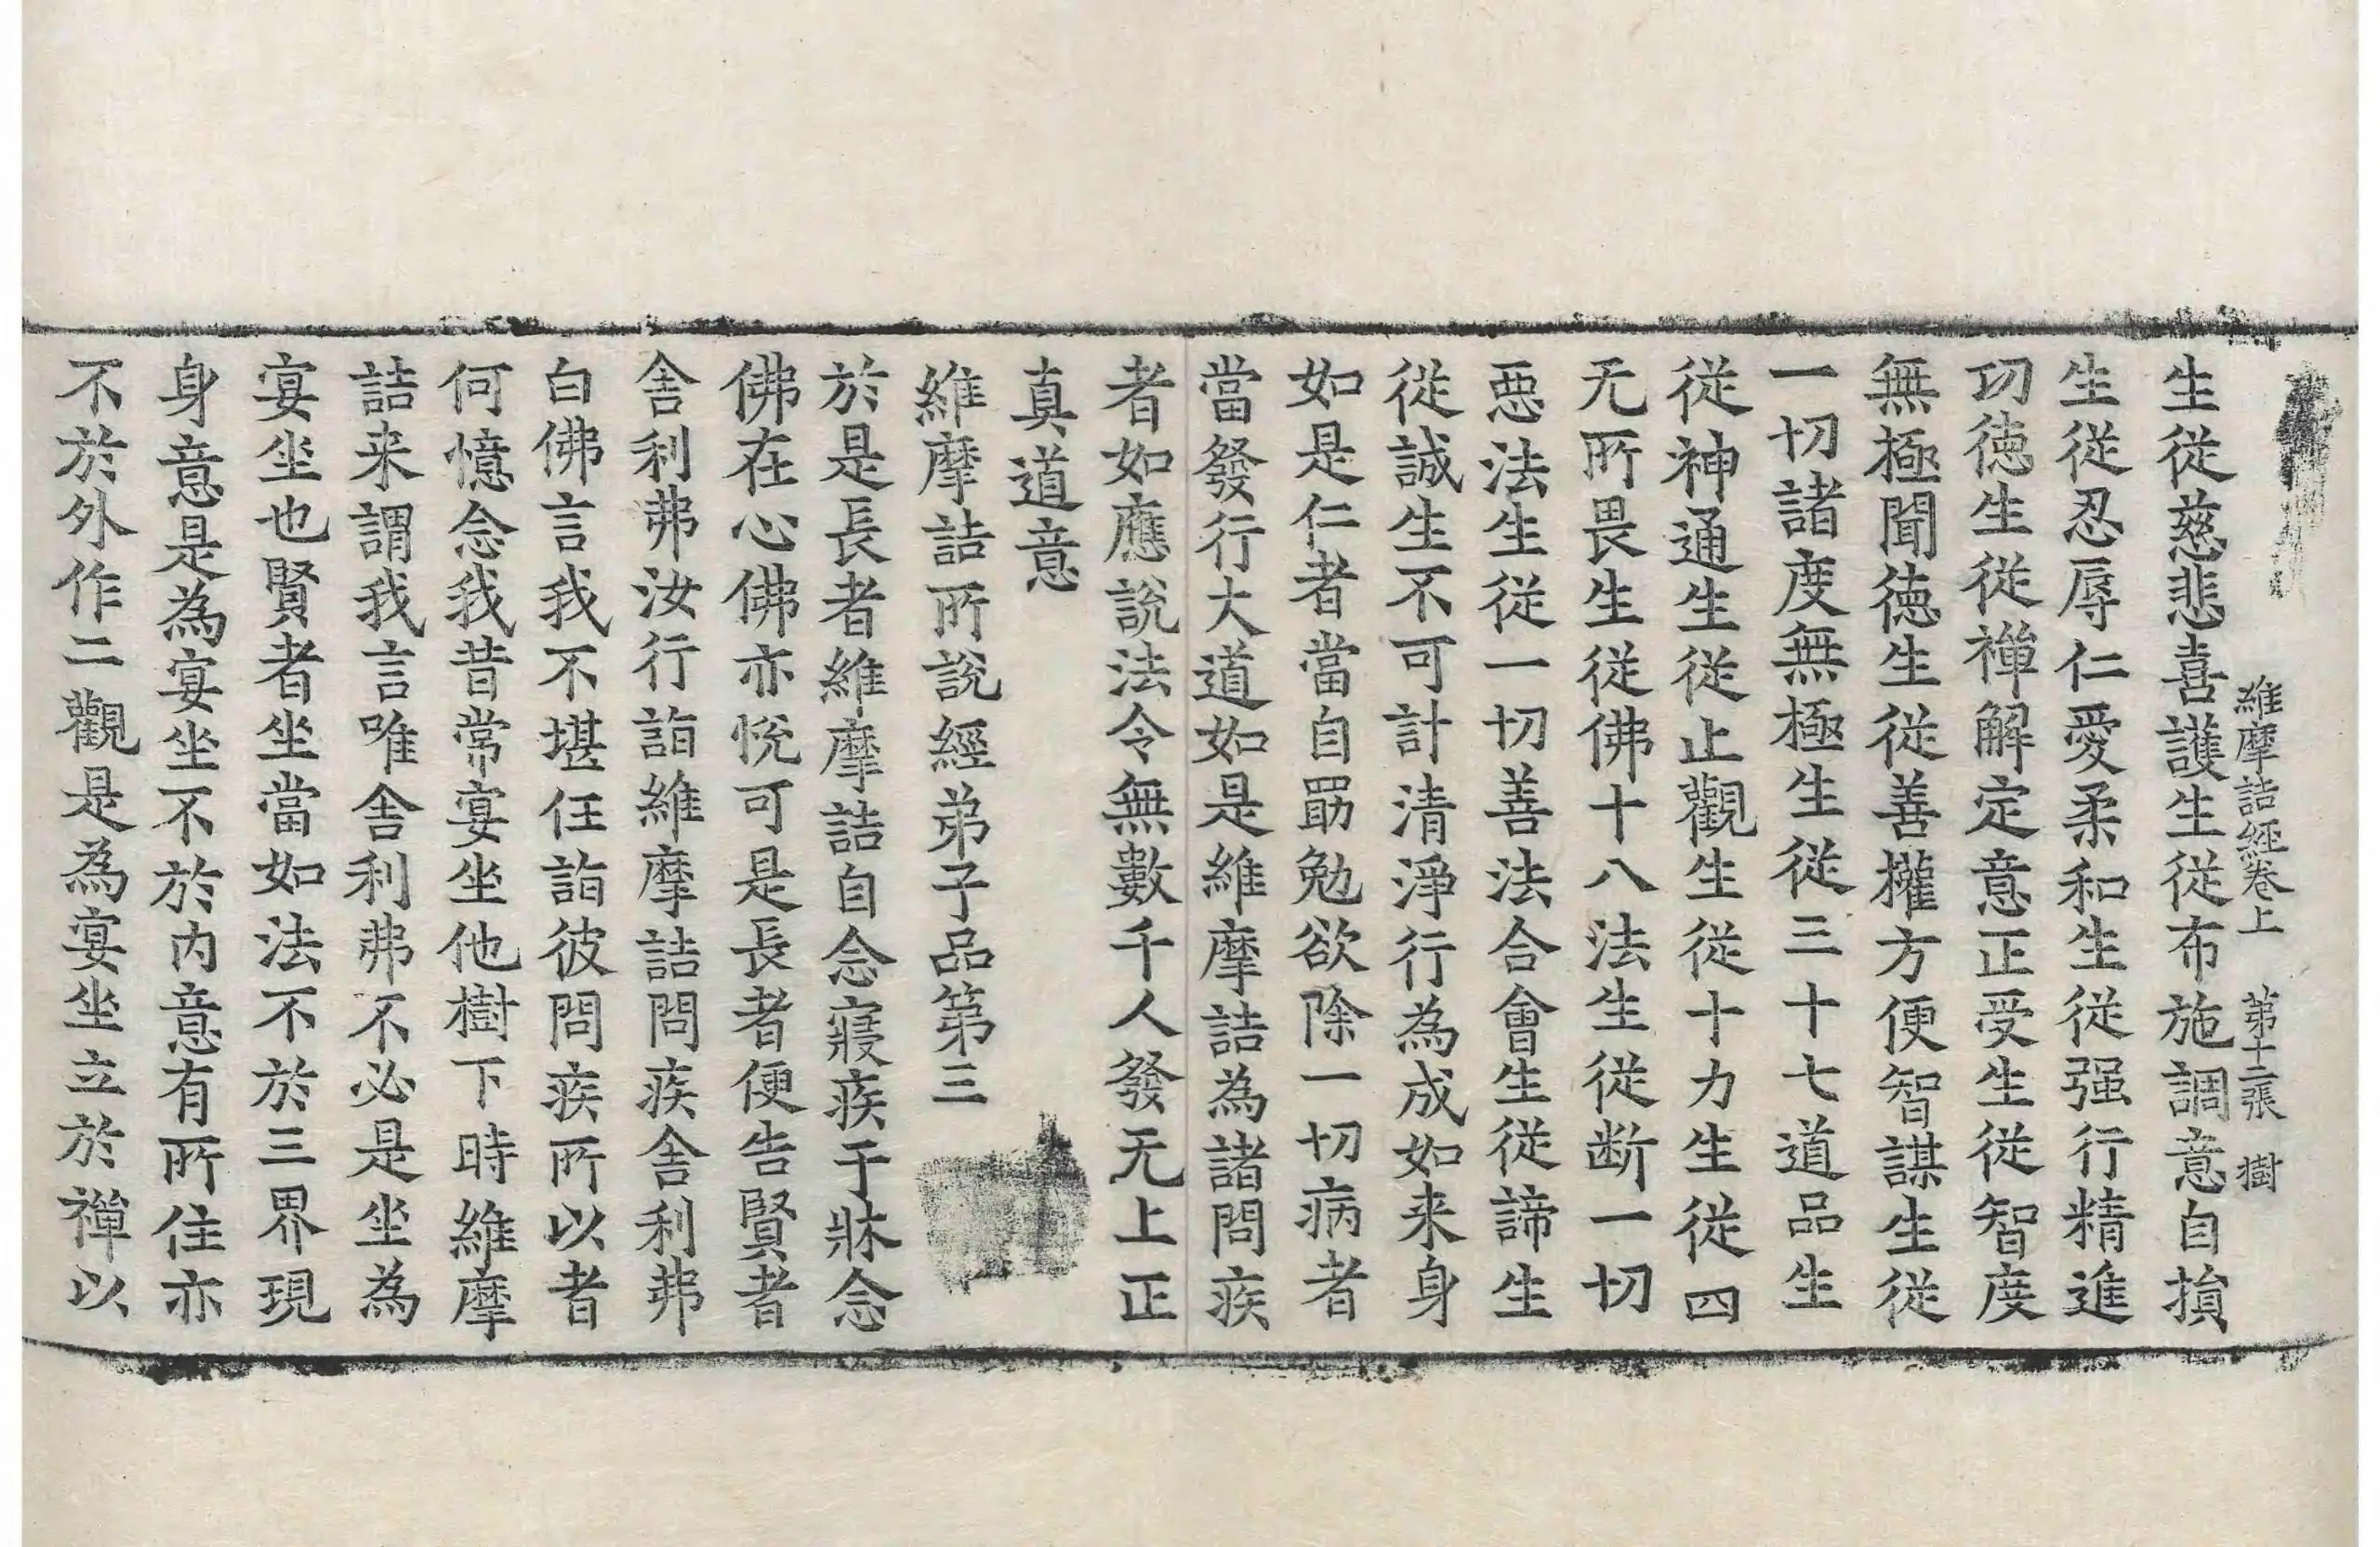 維摩詰經卷上 第十二張 樹
生從慈悲喜護生從布施調意自損
生從忍辱仁愛柔和生從强行精進
功徳生從禪解定意正受生從智度
無極聞徳生從善權方便智謀生從
一切諸度無極生從三十七道品生
從神通生從止觀生從十力生從四
无所畏生從佛十八法生從断一切
惡法生從一切善法合會生從諦生
從誠生不可計清淨行為成如来身
如是仁者當自勖勉欲除一切病者
當發行大道如是維摩詰為諸問疾
者如應說法令無數千人發无上正
真道意
維摩詰所說經弟子品第三
於是長者維摩詰自念寢疾于牀念
佛在心佛亦悅可是長者便告賢者
舎利弗汝行詣維摩詰問疾舎利弗
白佛言我不堪任詣彼問疾所以者
何憶念我昔常宴坐他樹下時維摩
詰来謂我言唯舎利弗不必是坐為
宴坐也賢者坐當如法不於三界現
身意是為宴坐不於内意有所住亦
不於外作二觀是為宴坐立於禪以